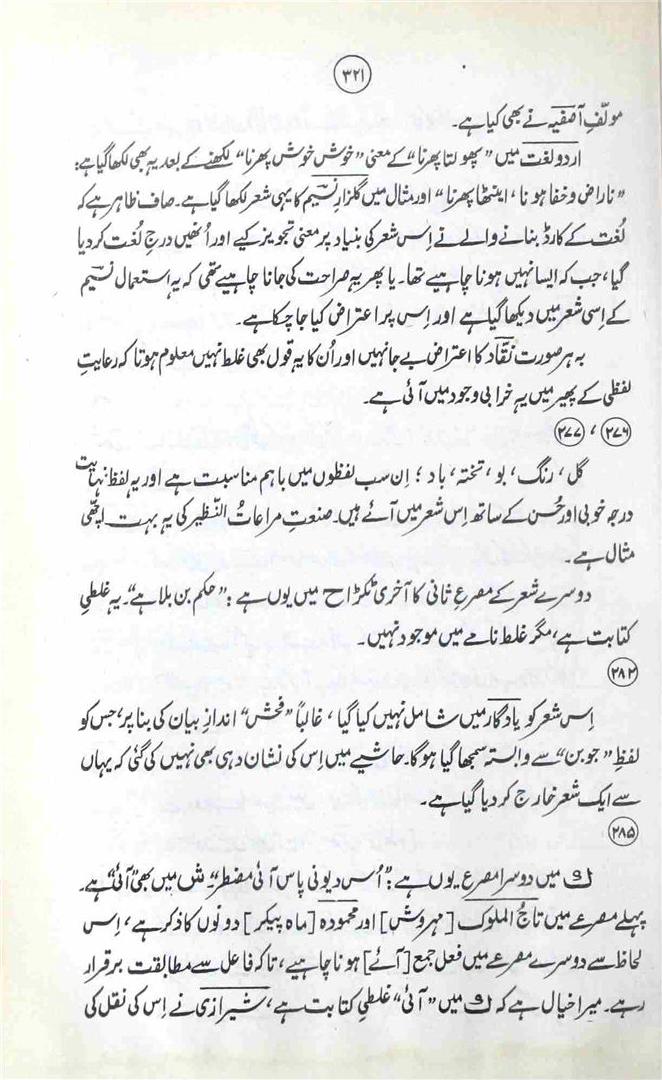 ۳۲۱
مولّفِ آصفیہ نے بھی کیا ہے۔
اردو لغت میں "پھولتا پھرنا" کے معنی "خوش خوش پھرنا" لکھنے کے بعد یہ بھی لکھا گیا ہے:
"ناراض و خفا ہونا، اینٹھا پھرنا" اور مثال میں گلزارِ نسیم کا یہی شعر لکھا گیا ہے۔ صاف ظاہر ہے کہ
لُغت کے کارڈ بنانے والے نے اِس شعر کی بنیاد پر معنی تجویز کیے اور اُنھیں درجِ لُغت کر دیا
گیا، جب کہ ایسا نہیں ہونا چاہیے تھا۔ یا پھر یہ صراحت کی جانا چاہیے تھی کہ یہ استعمال نسیم
کے اِسی شعر میں دیکھا گیا ہے اور اِس پر اعتراض کیا جا چکا ہے۔
بہ ہر صورت نقّاد کا اعتراض بے جا نہیں اور اُن کا یہ قول بھی غلط نہیں معلوم ہوتا کہ رعایتِ
لفظی کے پھیر میں یہ خرابی وجود میں آئی ہے۔
۲۷۶ ، ۲۷۷
گل، رنگ، بو، تختہ، باد؛ اِن سب لفظوں میں باہم مناسبت ہے اور یہ لفظ نہایت
درجہ خوبی اور حُسن کے ساتھ اِس شعر میں آئے ہیں۔ صنعتِ مراعاتُ النّظیر کی یہ بہت اچھّی
مثال ہے۔
دوسرے شعر کے مصرعِ ثانی کا آخری ٹکڑا ح میں یوں ہے: "حکم بن بلا ہے"۔ یہ غلطیِ
کتابت ہے، مگر غلط نامے میں موجود نہیں۔
۲۸۲
اِس شعر کو یادگار میں شامل نہیں کیا گیا، غالباً "فحش" اندازِ بیان کی بنا پر، جس کو
لفظِ "جوبن" سے وابستہ سمجھا گیا ہوگا۔ حاشیے میں اِس کی نشان دہی بھی نہیں کی گئی کہ یہاں
سے ایک شعر خارج کر دیا گیا ہے۔
۲۸۵
ك میں دوسرا مصرع یوں ہے: "اُس دیونی پاس آئی مضطر"۔ ش میں بھی "آئی" ہے۔
پہلے مصرعے میں تاج الملوک [مہروش] اور محمودہ [ماہ پیکر] دونوں کا ذکر ہے، اِس
لحاظ سے دوسرے مصرعے میں فعل جمع [آئے] ہونا چاہیے، تاکہ فاعل سے مطابقت برقرار
رہے۔ میرا خیال ہے کہ ك میں "آئی" غلطیِ کتابت ہے، شیرازی نے اِس کی نقل کی